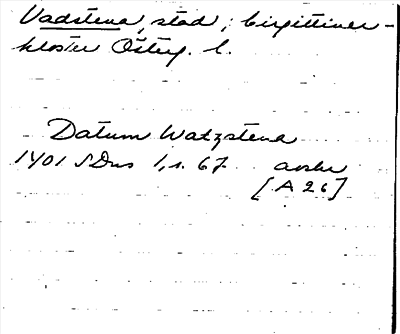 Vadstena, stad; birgittiner-
kloster Österg. l.
Datum Watzstena
1401 SDns 1, s. 67. avskr
[A 26]